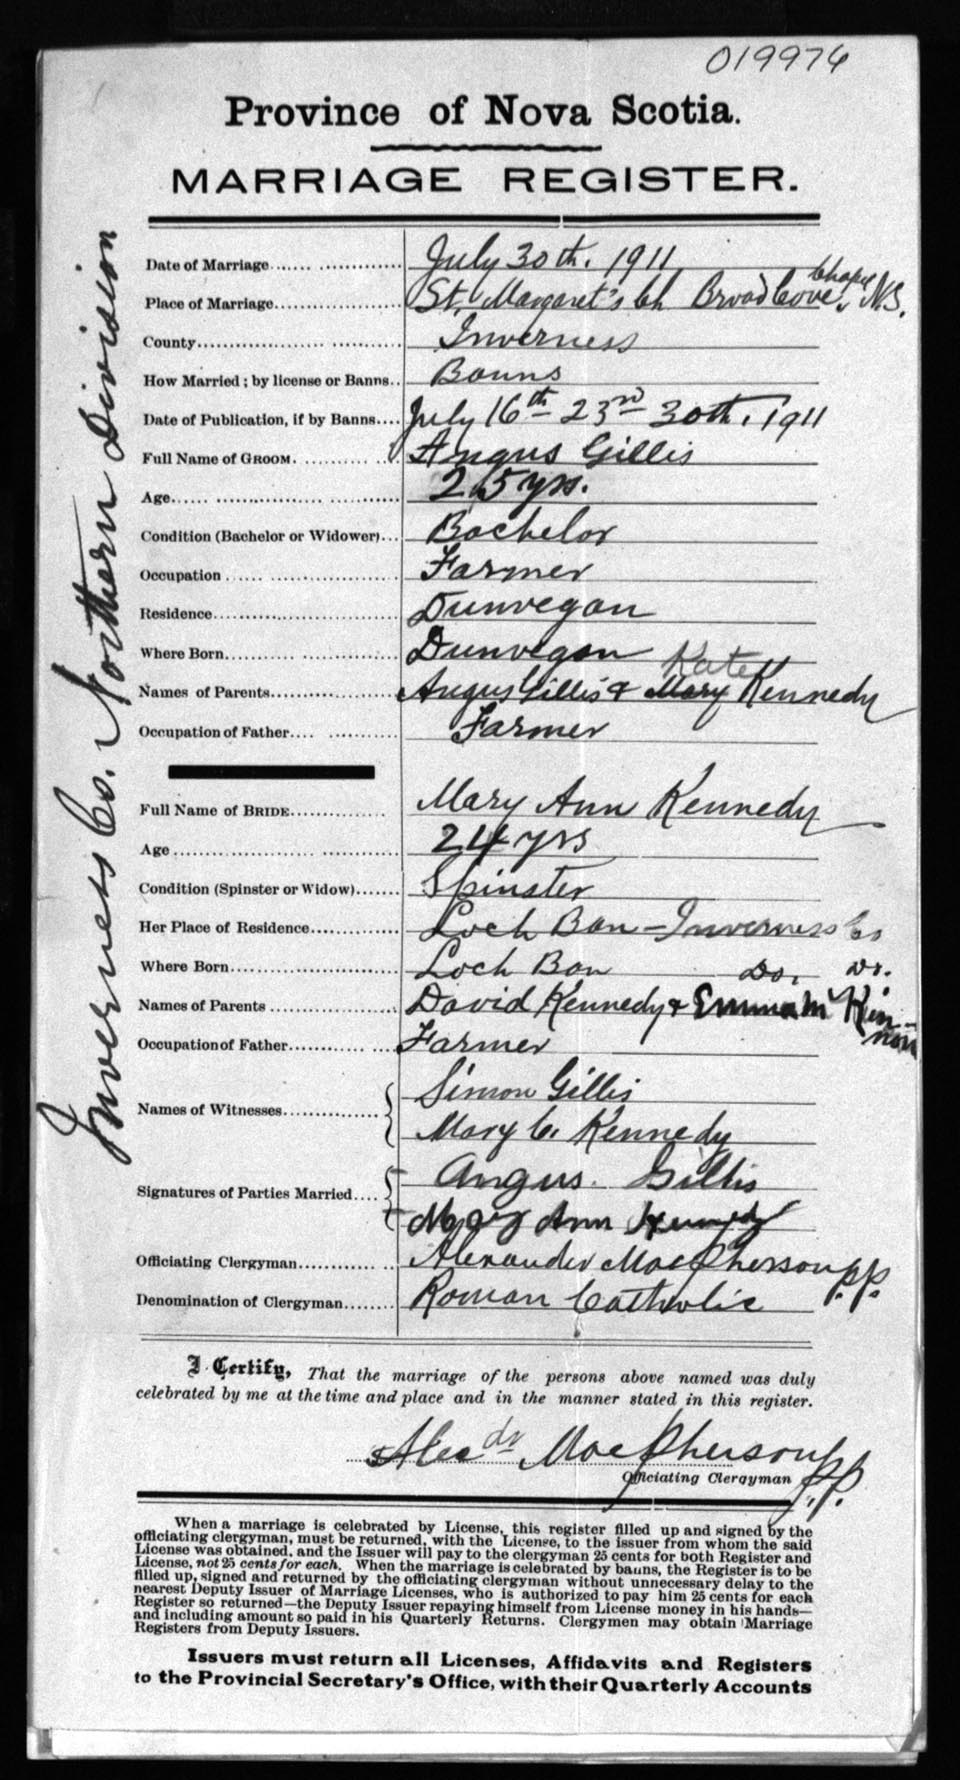 019976
Province of Nova Scotia.
MARRIAGE REGISTER.
Inverness Co. Northern Division
Date of Marriage...... July 30th. 1911
Place of Marriage...... St. Margaret's Ch Broad Cove Chapel, N.S.
County...... Inverness
How Married ; by license or Banns.. Banns
Date of Publication, if by Banns.... July 16th 23rd 30th. 1911
Full Name of GROOM. ...... Angus Gillis
Age...... 25 yrs.
Condition (Bachelor or Widower)... Bachelor
Occupation ...... Farmer
Residence...... Dunvegan
Where Born...... Dunvegan
Names of Parents...... Angus Gillis & Mary Kate Kennedy
Occupation of Father.... Farmer
Full Name of BRIDE...... Mary Ann Kennedy
Age ...... 24 yrs
Condition (Spinster or Widow)...... Spinster
Her Place of Residence...... Loch Ban - Inverness Co
Where Born...... Loch Ban Do. Do.
Names of Parents ...... David Kennedy & Emma McKinnon
Occupation of Father...... Farmer
Names of Witnesses...... Simon Gillis
Mary C. Kennedy
Signatures of Parties Married.... Angus. Gillis
Mary Ann Kennedy
Officiating Clergyman...... Alexander MacPherson P.P.
Denomination of Clergyman...... Roman Catholic
I Certify, That the marriage of the persons above named was duly
celebrated by me at the time and place and in the manner stated in this register.
Alecdr MacPherson P.P.
Officiating Clergyman
When a marriage is celebrated by License, this register filled up and signed by the
officiating clergyman, must be returned, with the License, to the issuer from whom the said
License was obtained, and the Issuer will pay to the clergyman 25 cents for both Register and
License, not 25 cents for each. When the marriage is celebrated by banns, the Register is to be
filled up, signed and returned by the officiating clergyman without unnecessary delay to the
nearest Deputy Issuer of Marriage Licenses, who is authorized to pay him 25 cents for each
Register so returned—the Deputy Issuer repaying himself from License money in his hands—
and including amount so paid in his Quarterly Returns. Clergymen may obtain Marriage
Registers from Deputy Issuers.
Issuers must return all Licenses, Affidavits and Registers
to the Provincial Secretary's Office, with their Quarterly Accounts